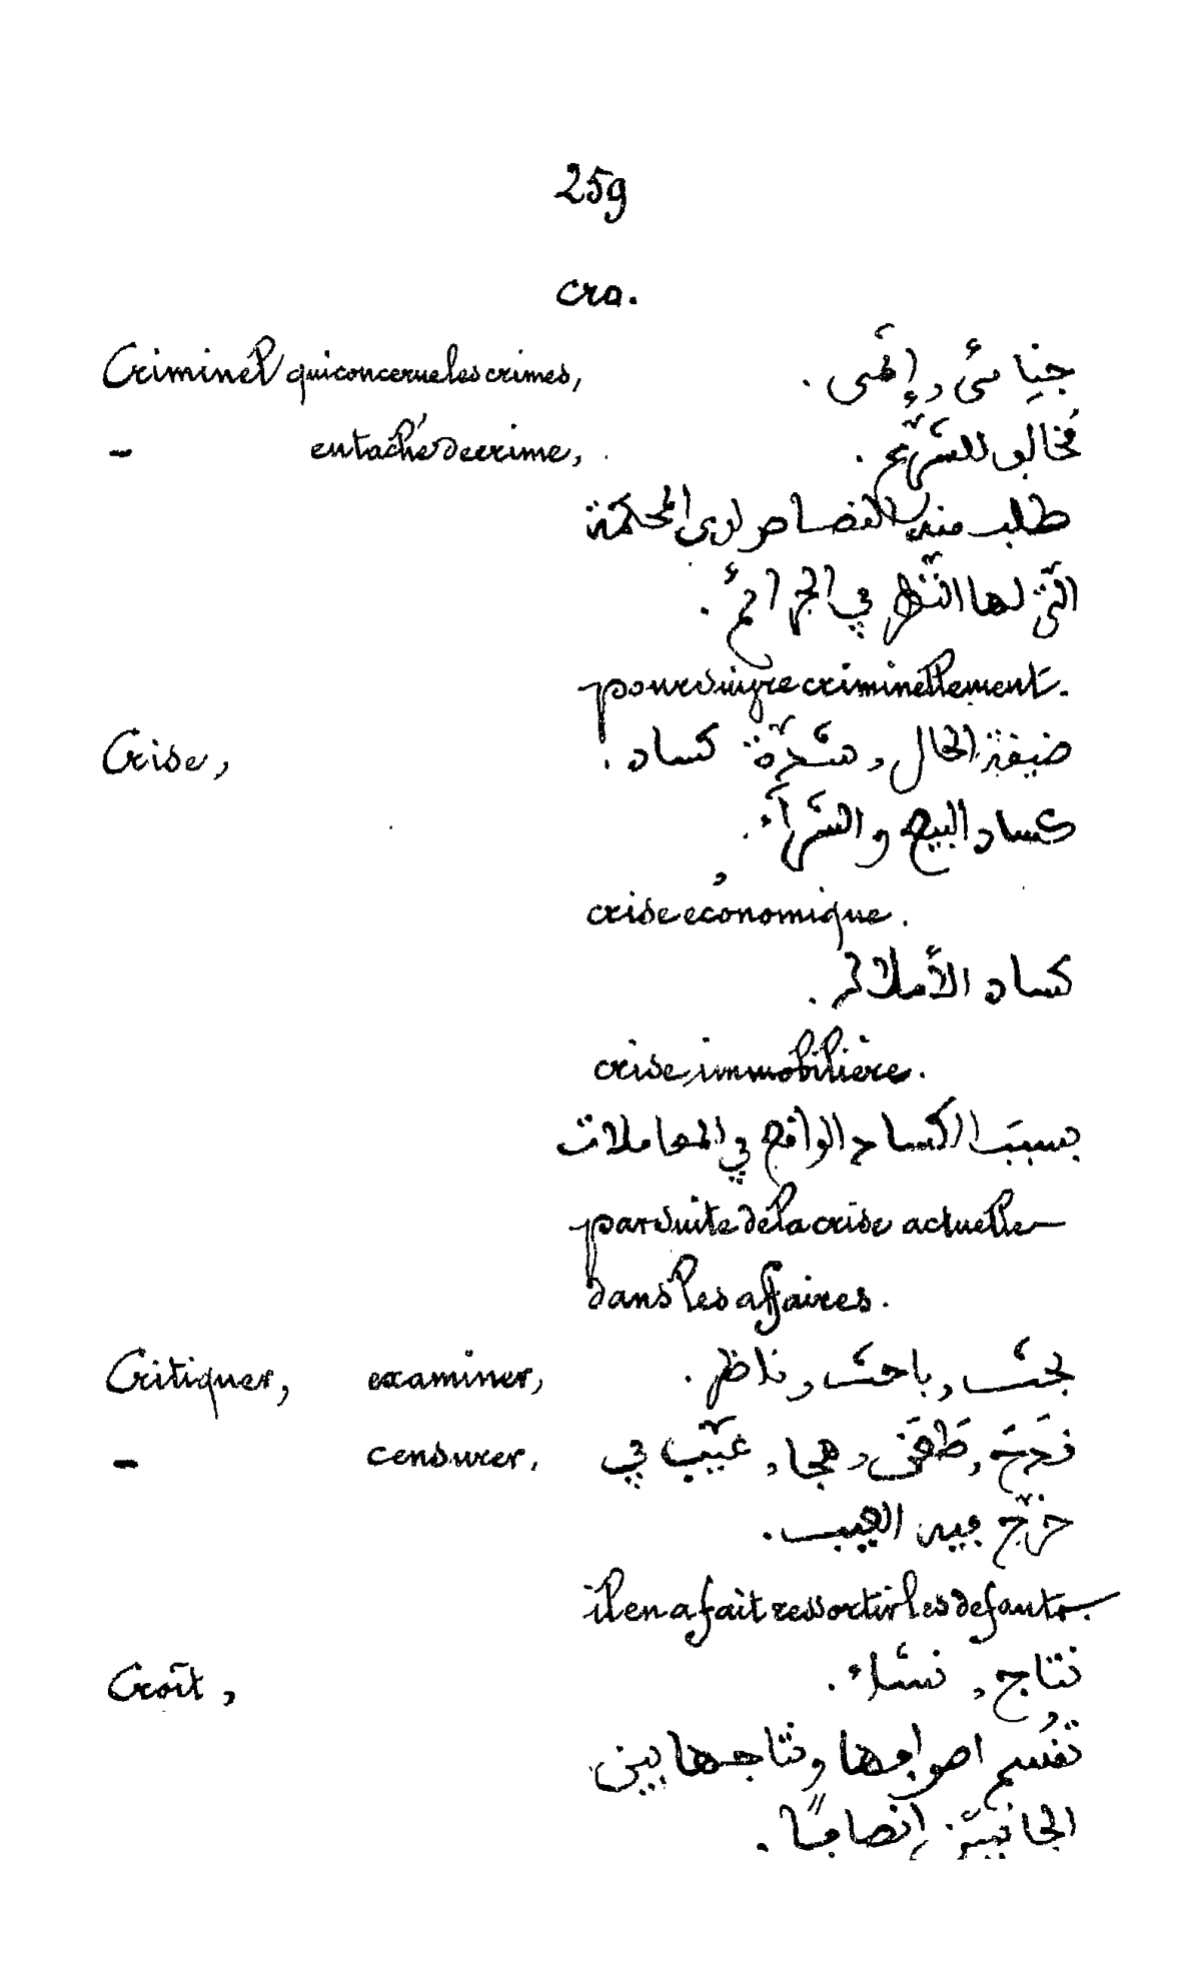 259
cro.
Criminel qui concerne les crimes, جنِائىُّ,
- entaché de crime, مُخَالف للشَّرْع.
طلب منه القصاص لدى المحكمة
التى لها النّظر في الجرائم.
poursuivre criminellement.
Crise, ضيقة الحال, شدّة كساد.
كساد البيع والشَّرآء.
crise économique.
كساد الأملاك.
crise immobilière.
بسبب الكساد الواقع في المعاملات
par suite de la crise actuelle
dans les affaires.
Critiquer, examiner, بحَث, باحث, ناظر.
- censurer, قدَح, طَعَن, هجا, عيّب في
خرّج فيه العيب.
il en a fait ressortir les defauts.
Croît, نتاج, نَشاء.
تُقسم اصوافها ونتاجها بين
الجانبين إنصافًا.